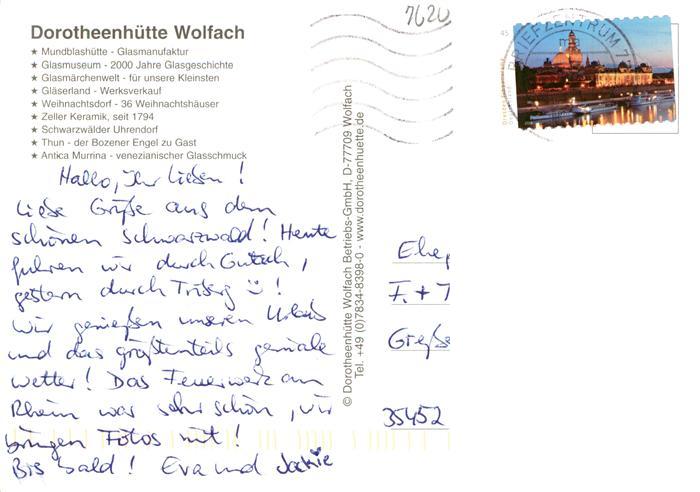 Dorotheenhütte Wolfach
★ Mundblashütte - Glasmanufaktur
★ Glasmuseum - 2000 Jahre Glasgeschichte
★ Glasmärchenwelt - für unsere Kleinsten
★ Gläserland - Werksverkauf
★ Weihnachtsdorf - 36 Weihnachtshäuser
★ Zeller Keramik, seit 1794
★ Schwarzwälder Uhrendorf
★ Thun - der Bozener Engel zu Gast
★ Antica Murrina - venezianischer Glasschmuck
Hallo, Ihr Lieben!
Liebe Grüße aus dem
schönen Schwarzwald! Heute
fuhren wir durch Gutach,
gestern durch Triberg ☺!
Wir genießen unseren Urlaub
und das größtenteils geniale
Wetter! Das Feuerwerk am
Rhein war sehr schön, wir
bringen Fotos mit!
Bis bald! Eva und Jackie
© Dorotheenhütte Wolfach Betriebs-GmbH, D-77709 Wolfach
Tel. +49 (0)7834-8398-0 - www.dorotheenhuette.de
7620
45
BRIEFZENTRUM 7
Ehe
F. + T
Große
35452